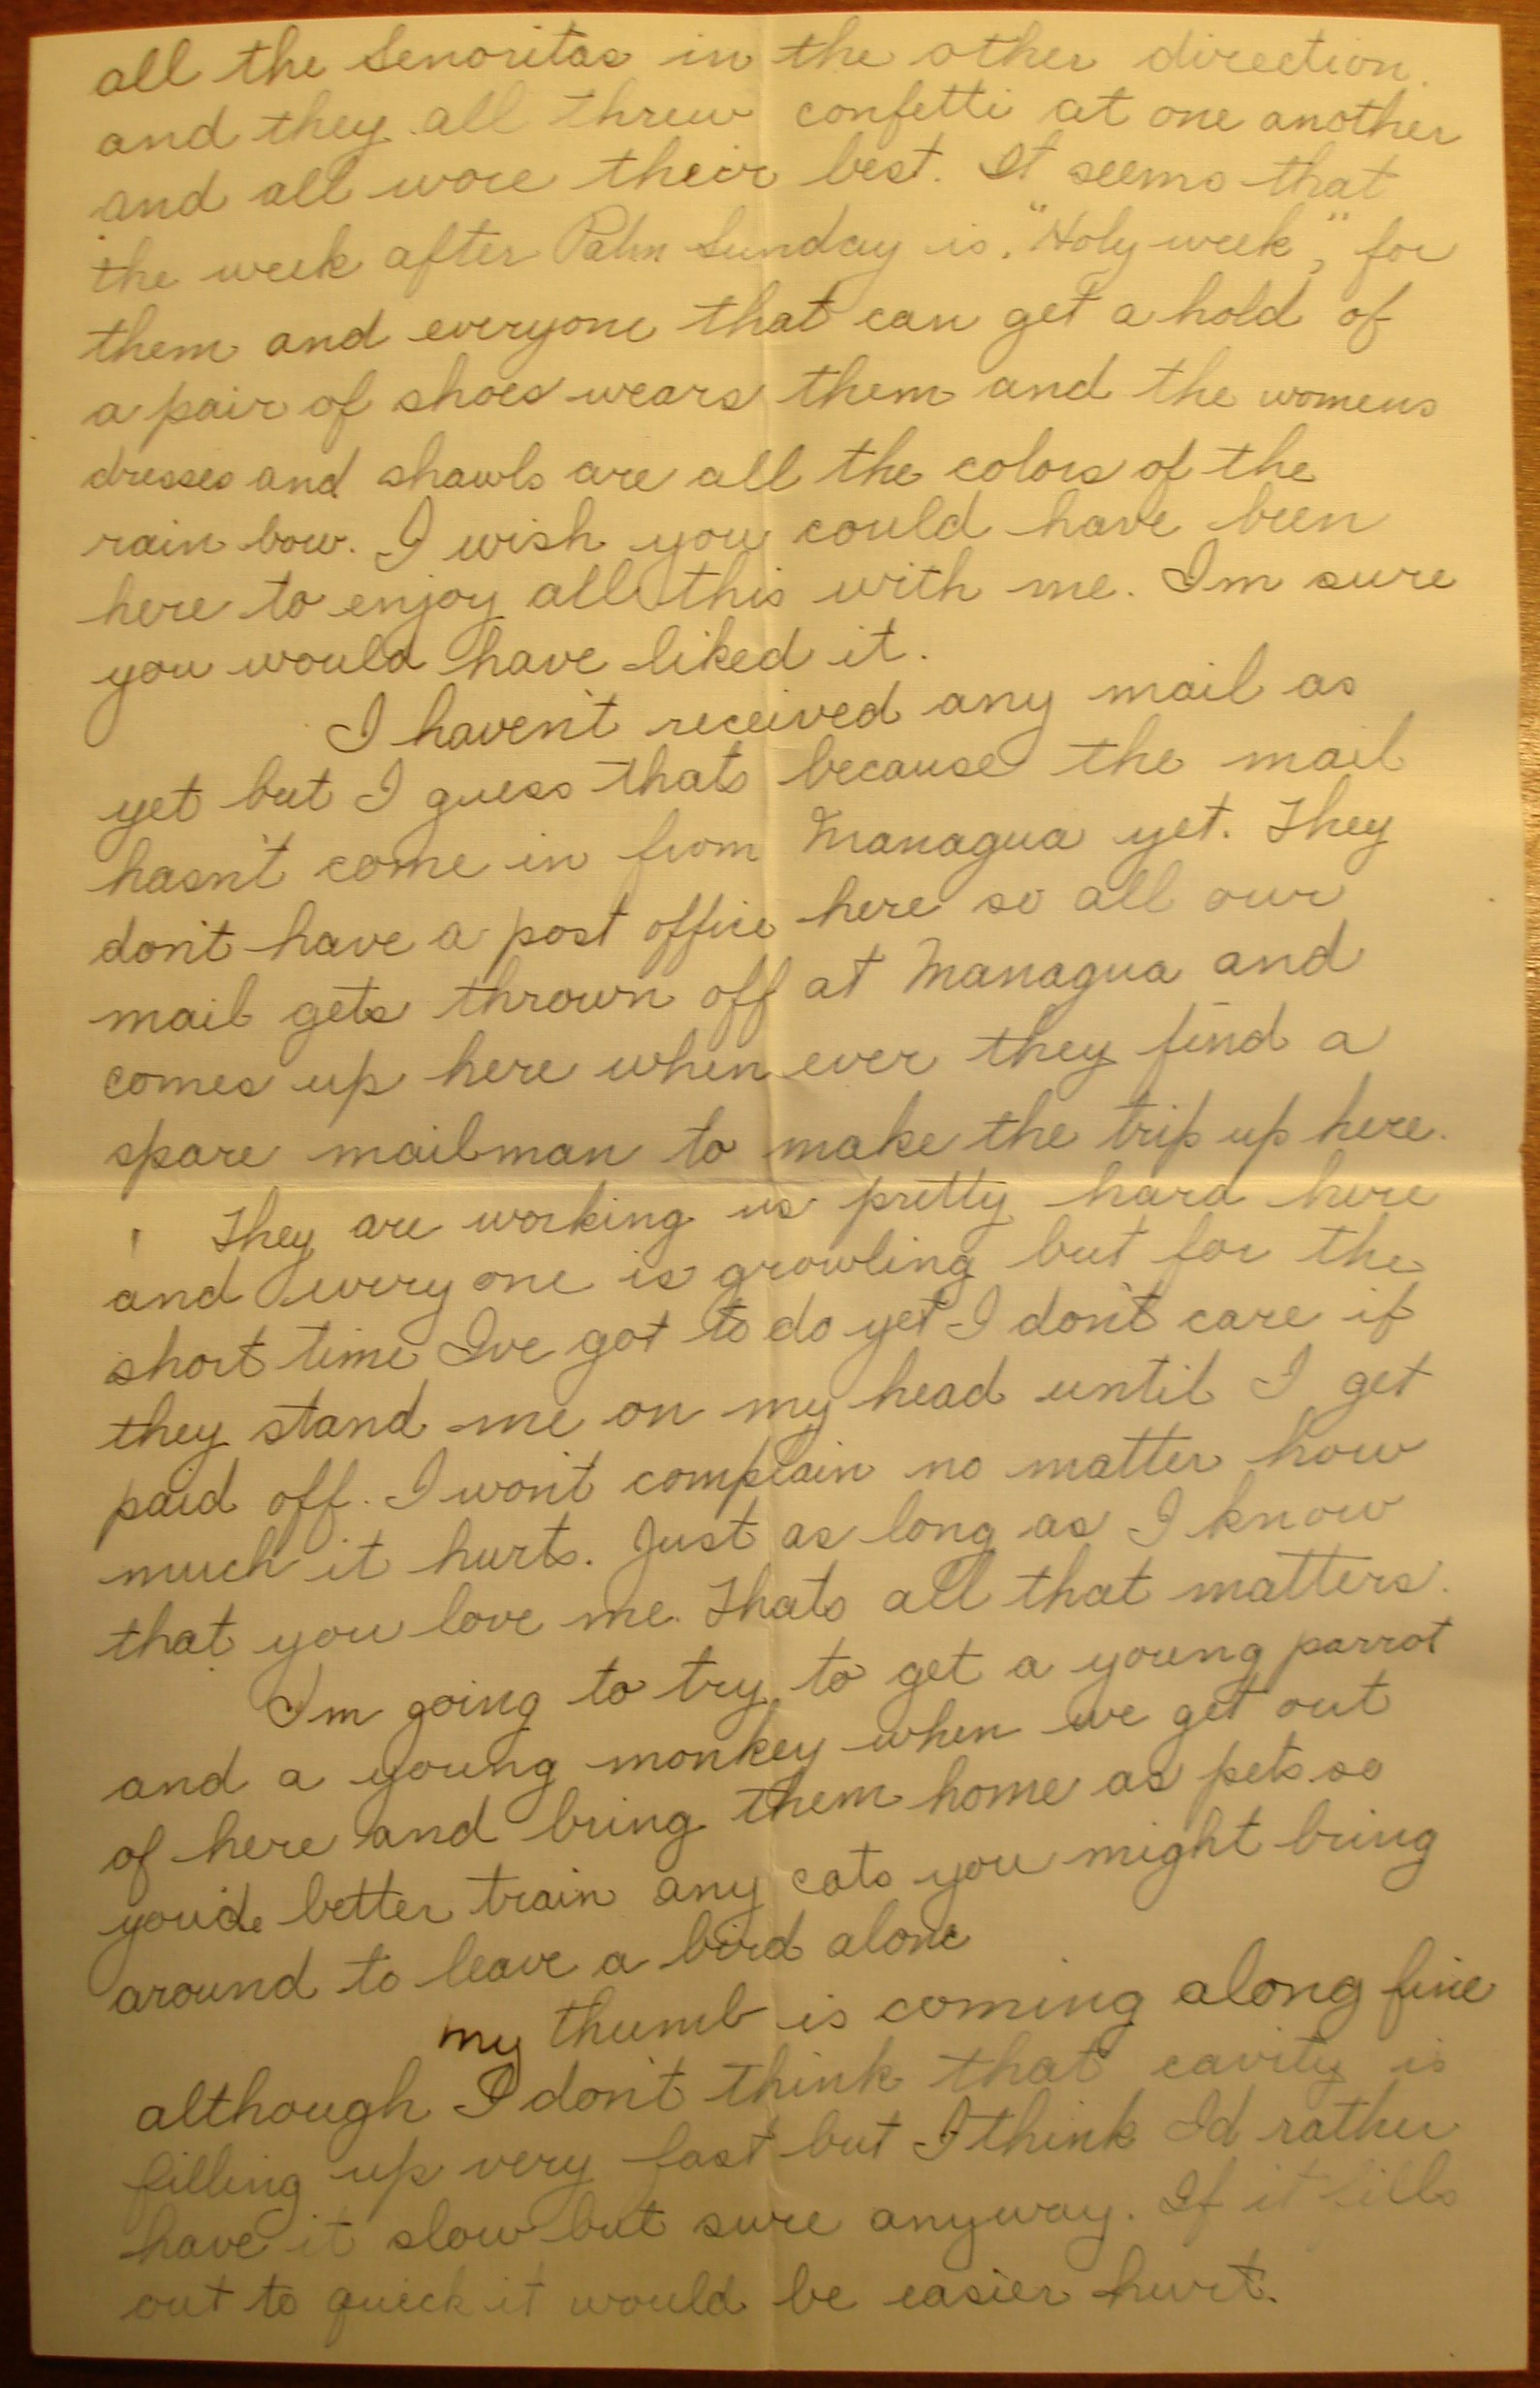 all the Senoritas in the other direction.
and they all threw confetti at one another
and all wore their best. It seems that
the week after Palm Sunday is "Holy week", for
them and everyone that can get a hold of
a pair of shoes wears them and the womens
dresses and shawls are all the colors of the
rain bow. I wish you could have been
here to enjoy all this with me. Im sure
you would have liked it.
I haven't received any mail as
yet but I guess thats because the mail
hasn't come in from Managua yet. They
don't have a post office here so all our
mail gets thrown off at Managua and
comes up here when ever they find a
spare mailman to make the trip up here.
They are working us pretty hard here
and every one is growling but for the
short time Ive got to do yet I don't care if
they stand me on my head until I get
paid off. I won't complain no matter how
much it hurts. Just as long as I know
that you love me. Thats all that matters.
I'm going to try to get a young parrot
and a young monkey when we get out
of here and bring them home as pets so
you'de better train any cats you might bring
around to leave a bird alone
my thumb is coming along fine
although I don't think that cavity is
filling up very fast but I think Id rather
have it slow but sure anyway. If it fills
out to quick it would be easier hurt.